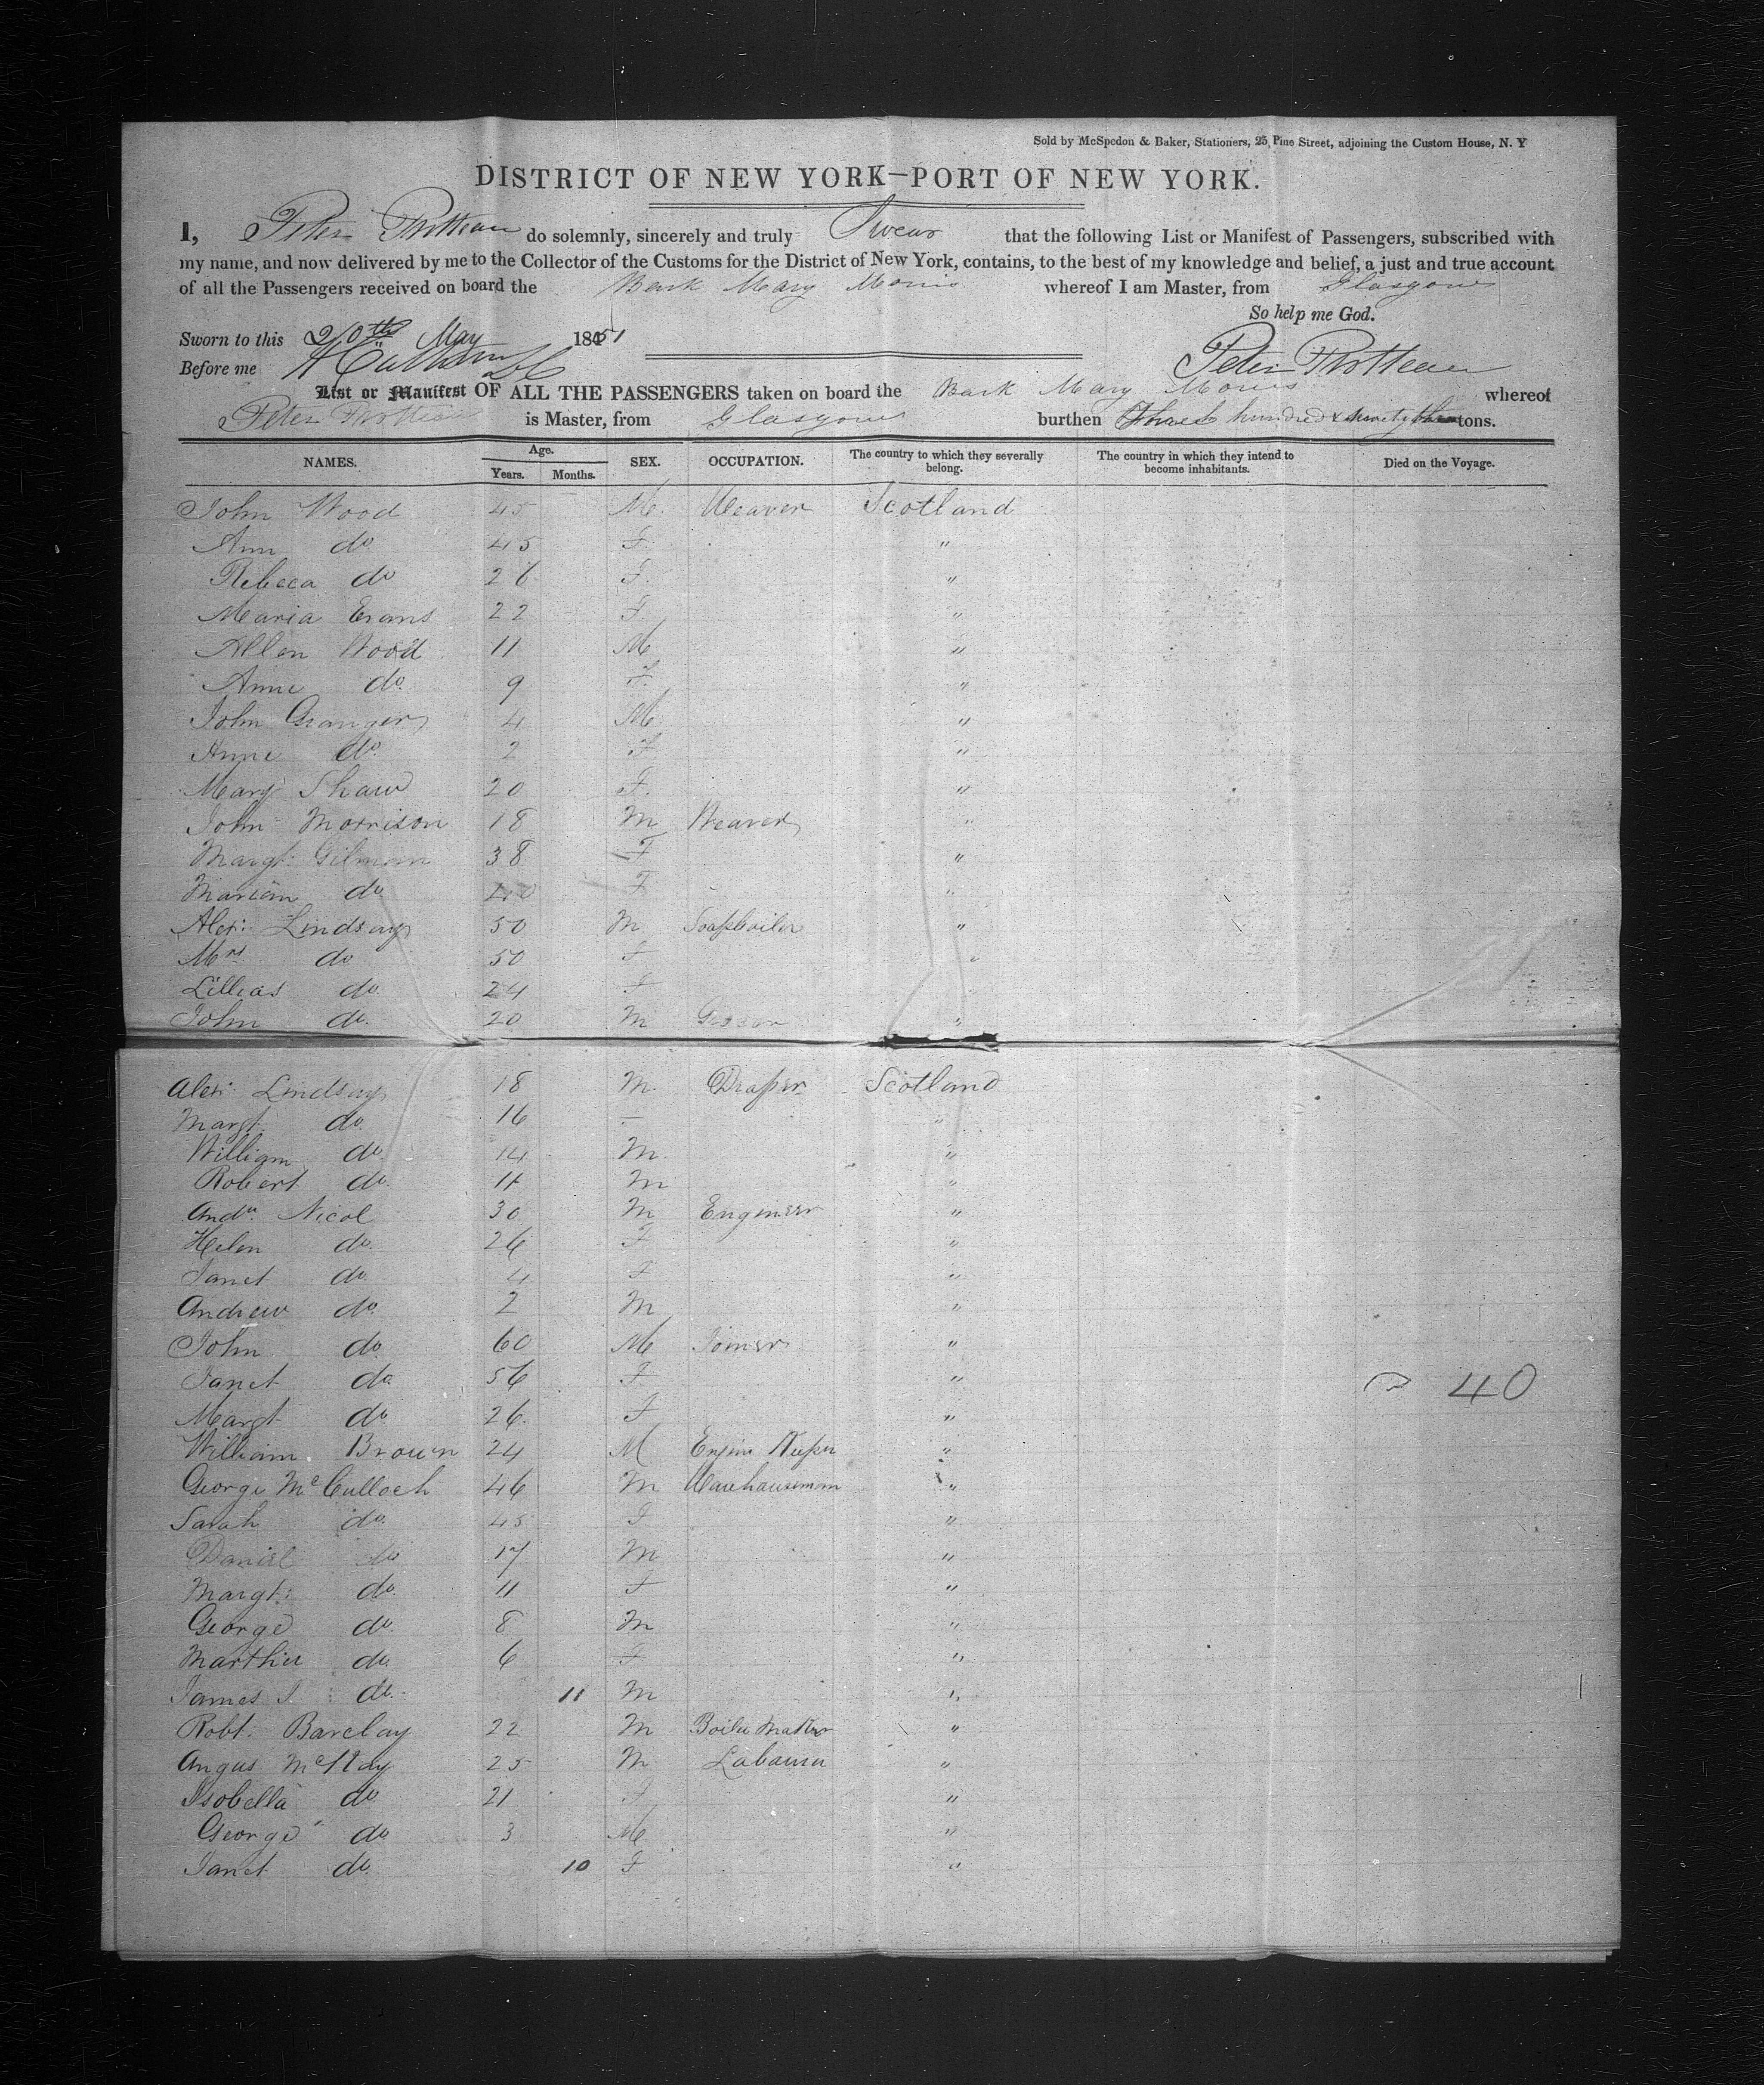 Sold by McSpedon & Baker, Stationers, 25 Pine Street, adjoining the Custom House, N. Y
DISTRICT OF NEW YORK—PORT OF NEW YORK.
I, Peter do solemnly, sincerely and truly Swear that the following List or Manifest of Passengers, subscribed with
my name, and now delivered by me to the Collector of the Customs for the District of New York, contains, to the best of my knowledge and belief, a just and true account
of all the Passengers received on board the Bark Mary Morris whereof I am Master, from Glasgow
So help me God.
Sworn to this 20th May 1851
Before me Peter
List or Manifest OF ALL THE PASSENGERS taken on board the Bark Mary Morris whereof
Peter is Master, from Glasgow burthen Three hundred & seventy tons.
NAMES. Age. Years. Months. SEX. OCCUPATION. The country to which they severally belong. The country in which they intend to become inhabitants. Died on the Voyage.
John Wood 45 M. Weaver Scotland
Ann do 45 F. "
Rebeca do 26 F. "
Maria Evans 22 F. "
Allen Wood 11 M "
Anne do. 9 F. "
John Granger 4 M. "
Anne do. 2 F "
Mary Shaw 20 F. "
John Morrison 18 M Weaver "
Margt: Gilmour 38 F "
Marion do. F "
Alexr: Lindsay 50 M Soapboiler "
Mrs do 50 F "
Lillias do. 24 F
John do. 20 M "
Alexr: Lindsay 18 M. Draper Scotland
Margt. do. 16 — "
William do. 14 M. "
Robert do. 11 M "
Andw. Nicol 30 M Engineer "
Helen do. 26 F "
Janet do. 4 F "
Andrew do. 2 M "
John do. 60 M Joiner "
Janet do 56 F. "
40
Margt do. 26. F "
William Brown 24 M Engine Keeper "
George McCulloch 46 M Warehouseman "
Sarah do. 45 F "
Daniel do 17 M "
Margt: do. 11 F "
George do. 8 M "
Martha do. 6 F "
James J. do. 11 M "
Robt. Barclay 22 M Boiler Maker "
Angus McKay 25 M Labourer "
Isobella do 21 F "
George do 3 M "
Janet do. 10 F "